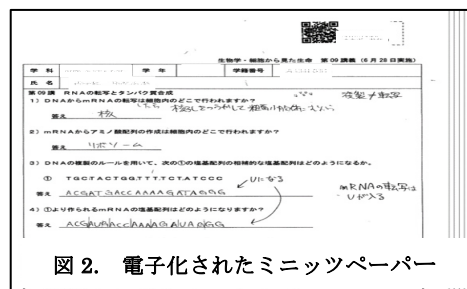 生物学・細胞から見た生命　第09講義（6月28日実施）
学 科　学 年　学籍番号
氏 名
第09講　RNAの転写とタンパク質合成
複製≠転写
1）DNAからmRNAの転写は細胞内のどこで行われますか？
答え　核
2）mRNAからアミノ酸配列の作成は細胞内のどこで行われますか？
答え　リボソーム
3）DNAの複製のルールを用いて、次の①の塩基配列の相補的な塩基配列はどのようになるか。
①　TGCTACTGGTTTTCTATCCC
Uになる
答え　ACGATGACCAAAAGATAGGG
mRNAの転写は
Uが入る
4）①より作られるmRNAの塩基配列はどのようになりますか？
答え
図 2.　電子化されたミニッツペーパー